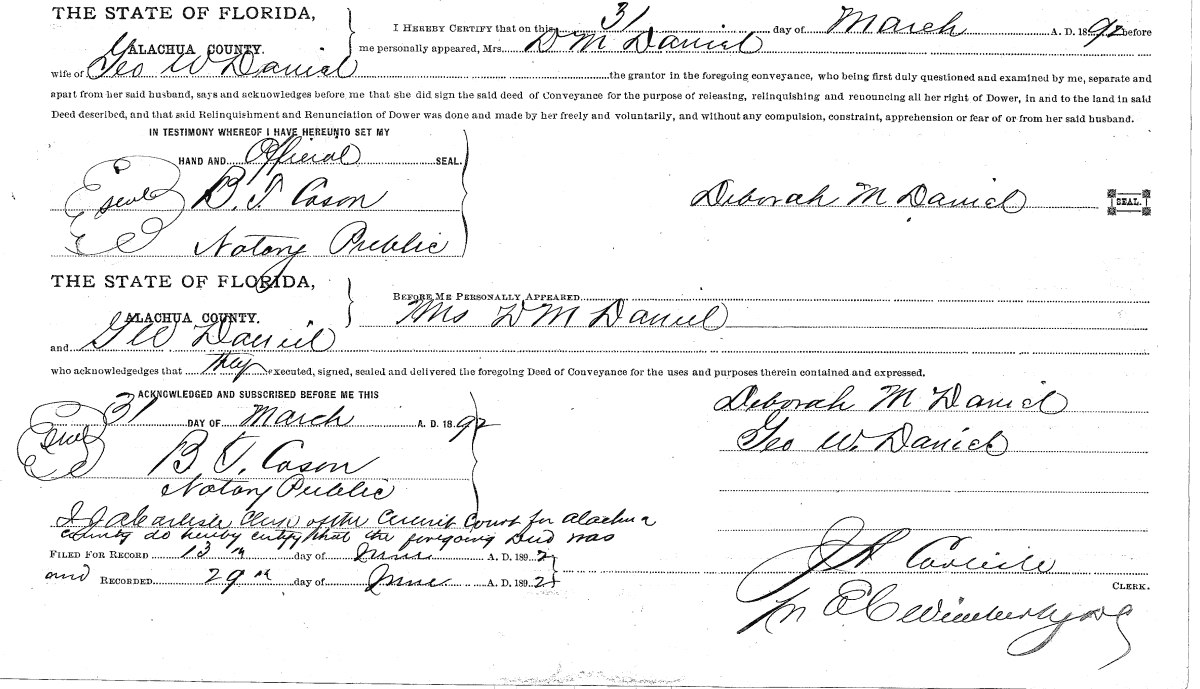 THE STATE OF FLORIDA,
ALACHUA COUNTY.
I HEREBY CERTIFY that on this 31 day of March A. D. 1892 before
me personally appeared, Mrs. D M Daniel
wife of Geo W Daniel the grantor in the foregoing conveyance, who being first duly questioned and examined by me, separate and
apart from her said husband, says and acknowledges before me that she did sign the said deed of Conveyance for the purpose of releasing, relinquishing and renouncing all her right of Dower, in and to the land in said
Deed described, and that said Relinquishment and Renunciation of Dower was done and made by her freely and voluntarily, and without any compulsion, constraint, apprehension or fear of or from her said husband.
IN TESTIMONY WHEREOF I HAVE HEREUNTO SET MY
HAND AND Official SEAL.
Seal B. T. Cason
Notary Public
Deborah M Daniel SEAL.
THE STATE OF FLORIDA,
ALACHUA COUNTY.
BEFORE ME PERSONALLY APPEARED
Mrs D M Daniel
and Geo Daniel
who acknowledgedges that they executed, signed, sealed and delivered the foregoing Deed of Conveyance for the uses and purposes therein contained and expressed.
ACKNOWLEDGED AND SUBSCRIBED BEFORE ME THIS
31 DAY OF March A. D. 18 92
Seal B. T. Cason
Notary Public
Deborah M Daniel
Geo W. Daniel
I J A Carlisle Clerk of the Circuit Court for Alachua
County do hereby certify that the foregoing Deed was
FILED FOR RECORD 13th day of June A. D. 1892
and RECORDED 29th day of June A. D. 1892
J A Carlisle
CLERK.